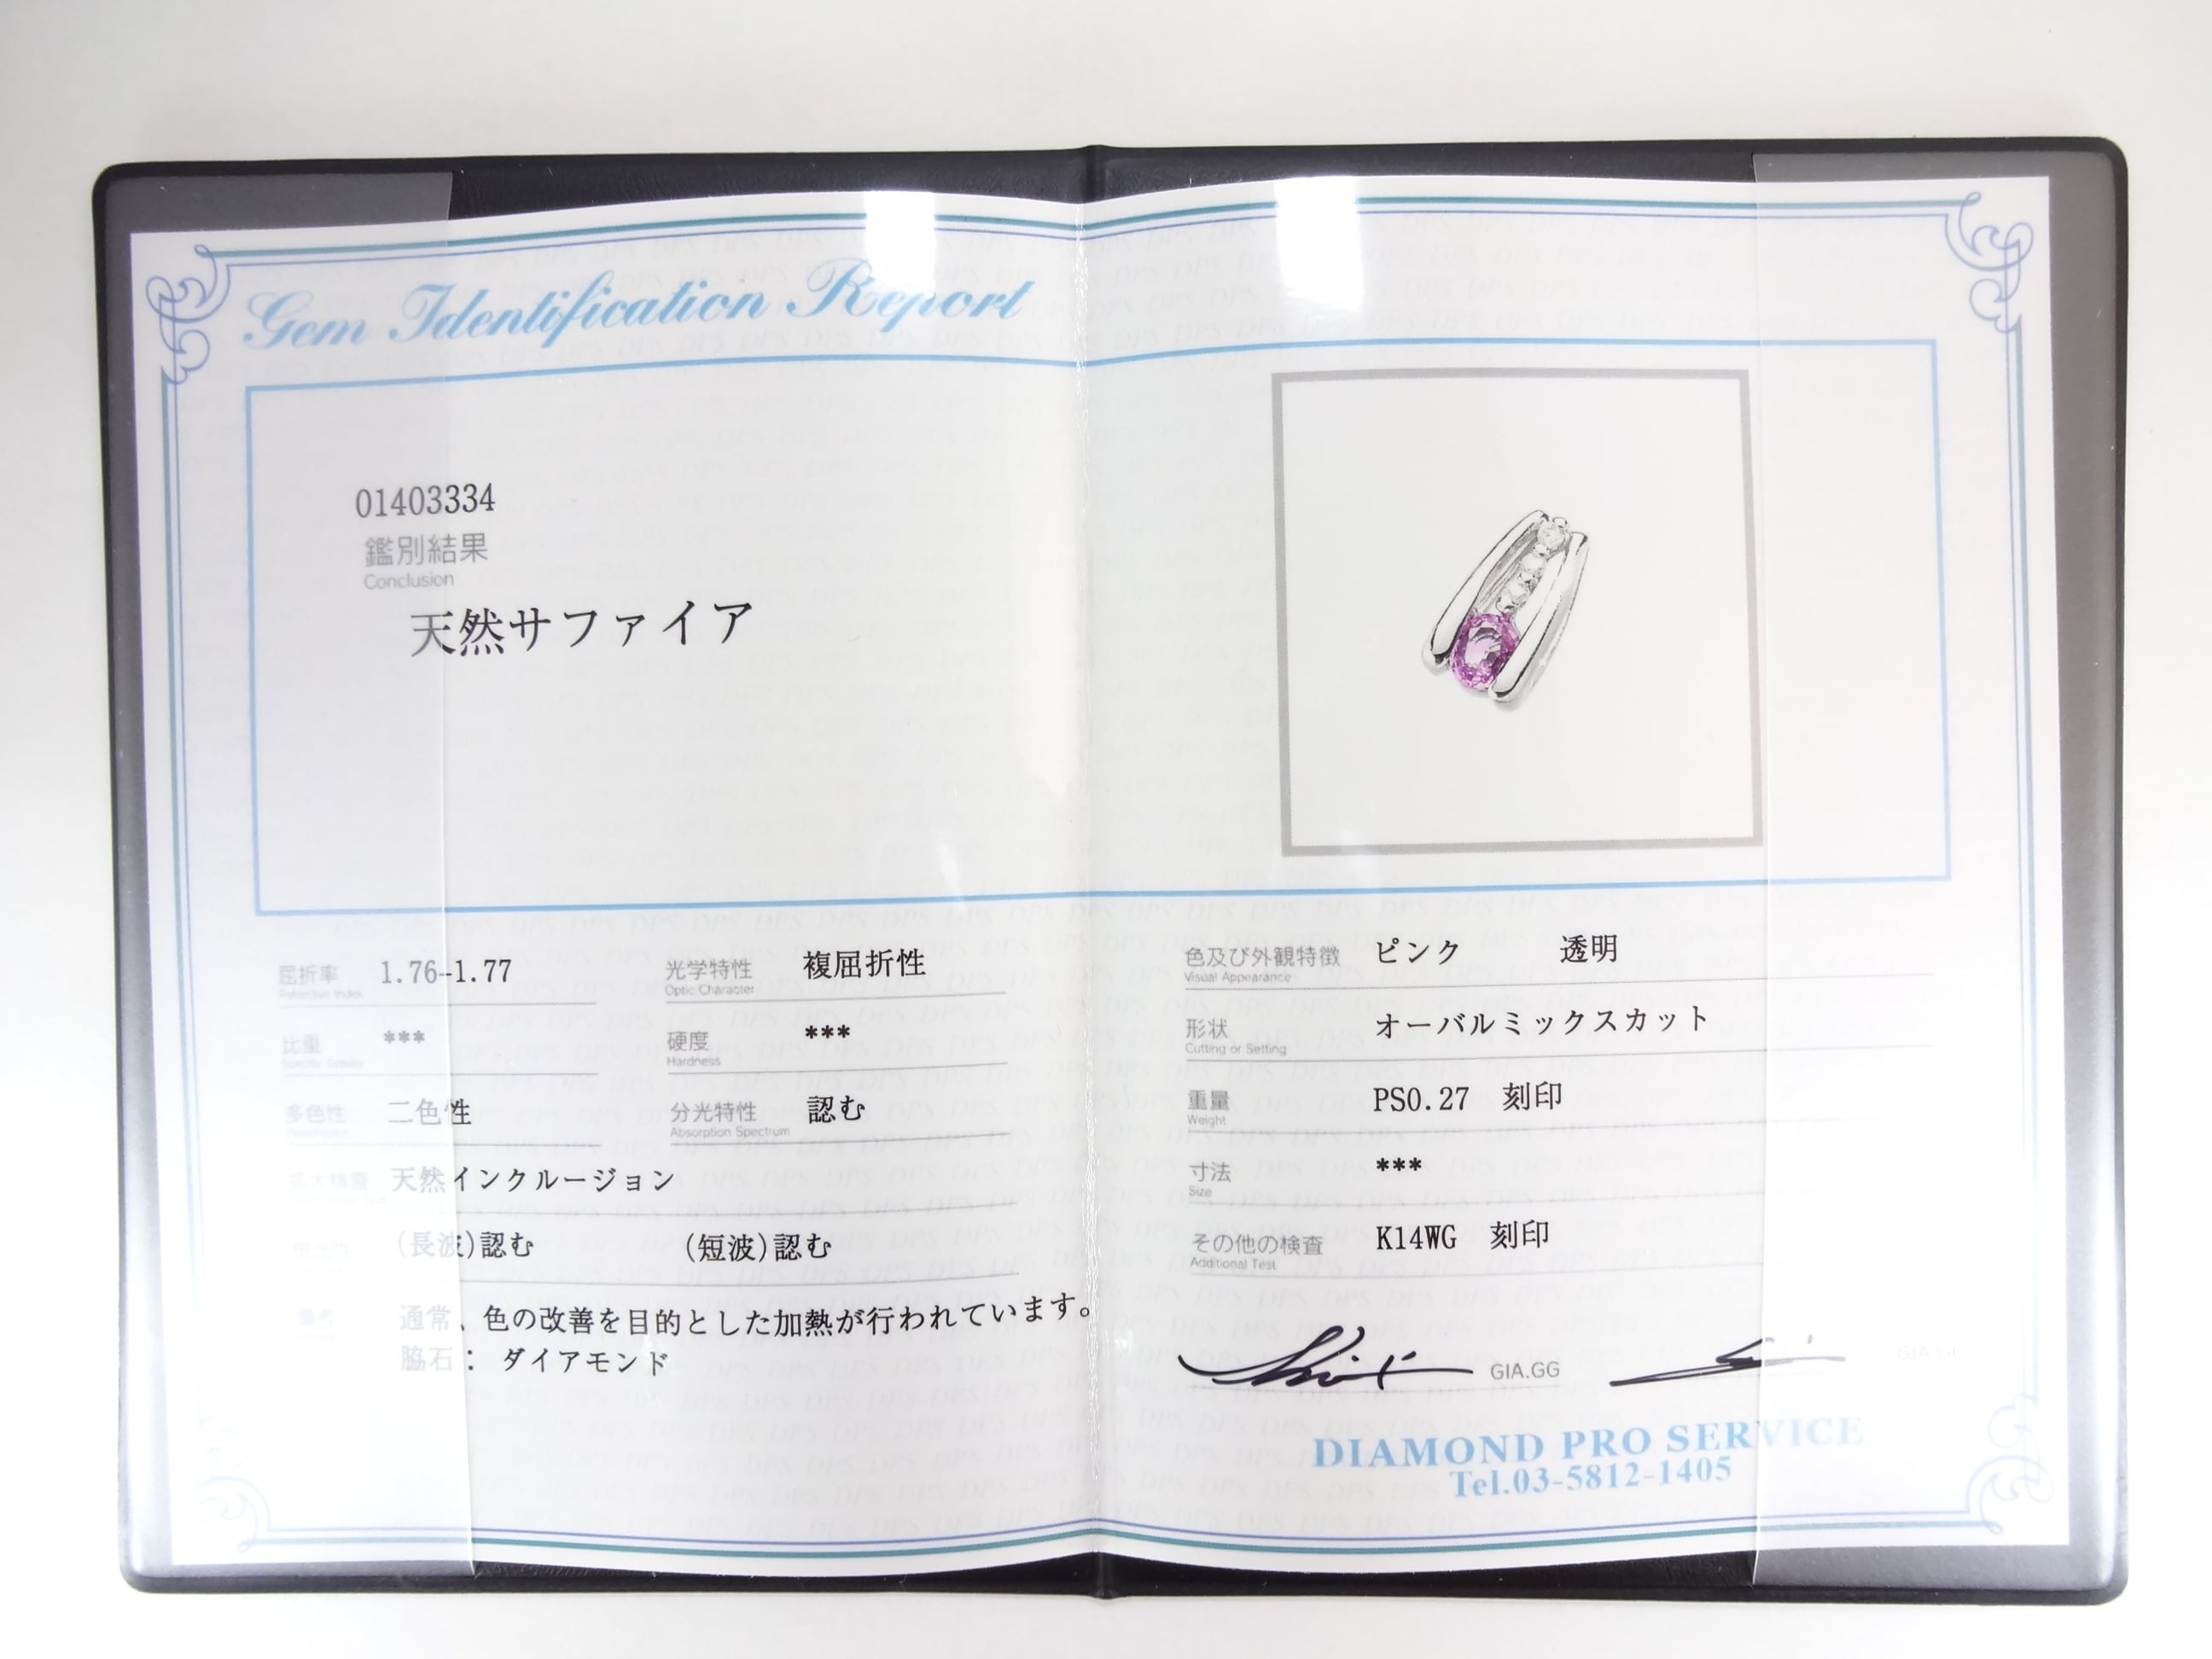 Gem Identification Report
01403334
鑑別結果
Conclusion
天然サファイア
屈折率 1.76-1.77 光学特性 複屈折性
Refractive Index Optic Character
比重 *** 硬度 ***
Specific Gravity Hardness
多色性 二色性 分光特性 認む
Pleochroism Absorption Spectrum
拡大検査 天然インクルージョン
(長波)認む (短波)認む
備考 通常、色の改善を目的とした加熱が行われています。
脇石： ダイアモンド
色及び外観特徴 ピンク 透明
Visual Appearance
形状 オーバルミックスカット
Cutting or Setting
重量 PS0.27 刻印
Weight
寸法 ***
Size
その他の検査 K14WG 刻印
Additional Test
GIA.GG GIA.GG
DIAMOND PRO SERVICE
Tel.03-5812-1405